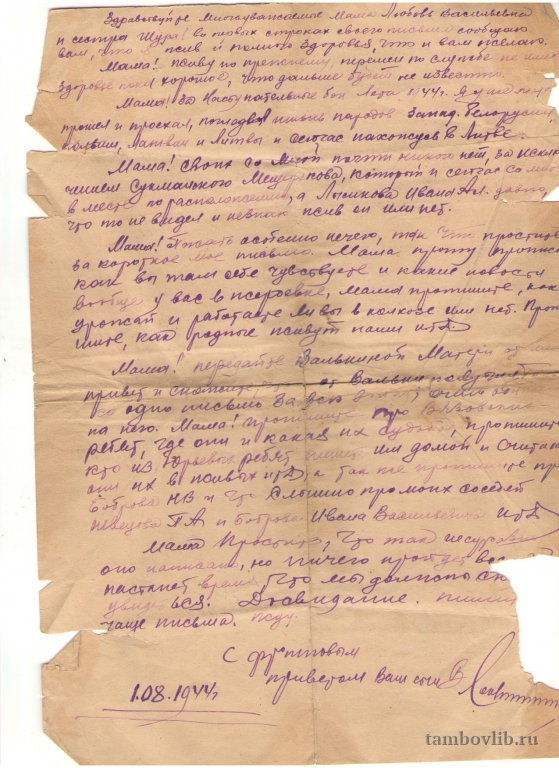 Здравствуйте Многоуважаемые Мама Любовь Васильевна
и сестра Шура! Во первых строках своего письма сообщаю
вам, что я жив и полного здоровья, что и вам желаю.
Мама! Живу по прежнему, перемен по службе не имею
Здоровье пока хорошее, что дальше будет не известно.
Мама! За Наступательные бои Лета 1944г. Я уже
прошел и проехал, жизнь народов Запад. Белоруссии,
Латвии и Литвы и сейчас нахожусь в Литве.
Мама! Своих со мной почти никого нет, за исклю
чением Сукманского Мещерякова, который и сейчас со мной
в месте по расположению, а Лысикова давно,
что то не видел и незнаю жив он или нет.
Мама! Писать особенно нечего, так что простите
за короткое мое письмо. Мама прошу
как вы там себе чувствуете и какие новости
вообще у вас в мама пропишите, как
урожай и работаете ли вы в колхозе или нет. Проп
ишите, как родные живут наши и т.д.
Мама! передайте Валькиной Матери от
привет и от Вальки получил
одно письмо за всю
на него. Мама! пропишите про
ребят, где они и какая их судьба, пропишите
кто из ребят пишет им домой и считают
они их в живых и т.д, а так же пропишите про
Боброва НВ и что слышно про моих соседей
Певцова ПА и Боброва Ивана Васильевича и т.д
Мама Простите, что так
оно написано, но ничего пройдет
настанет время, что мы должны
увидеться. Досвидание. пишите
чаще письма. Жду.
С фронтовым
приветом Ваш сын В.
1.08.1944г
tambovlib.ru